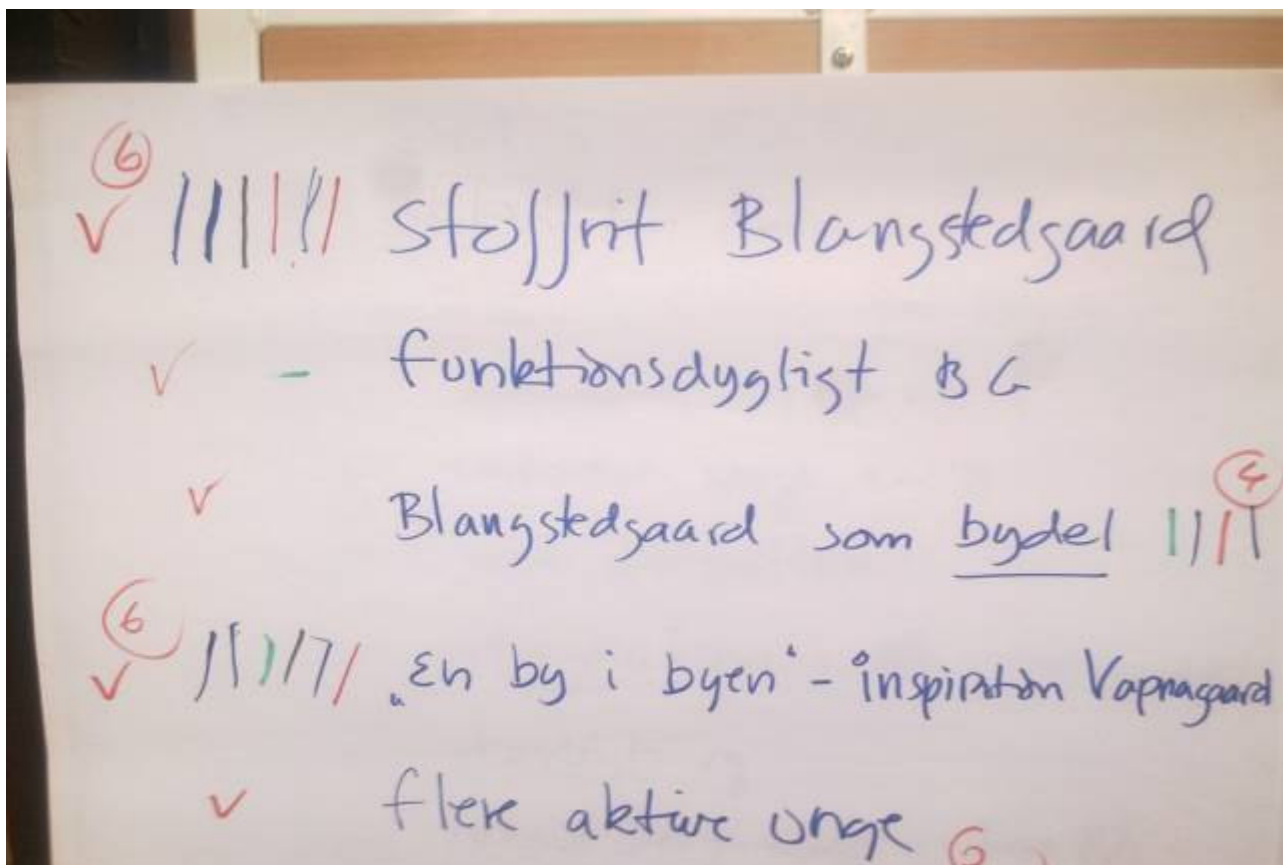 6
✓ ||||||| Stoffrit Blangstedgaard
✓ - funktionsdygtigt BG
✓ Blangstedgaard som bydel |||| 4
6
✓ |||||| „En by i byen“ - inspiration Vapnagaard
✓ flere aktive unge
6